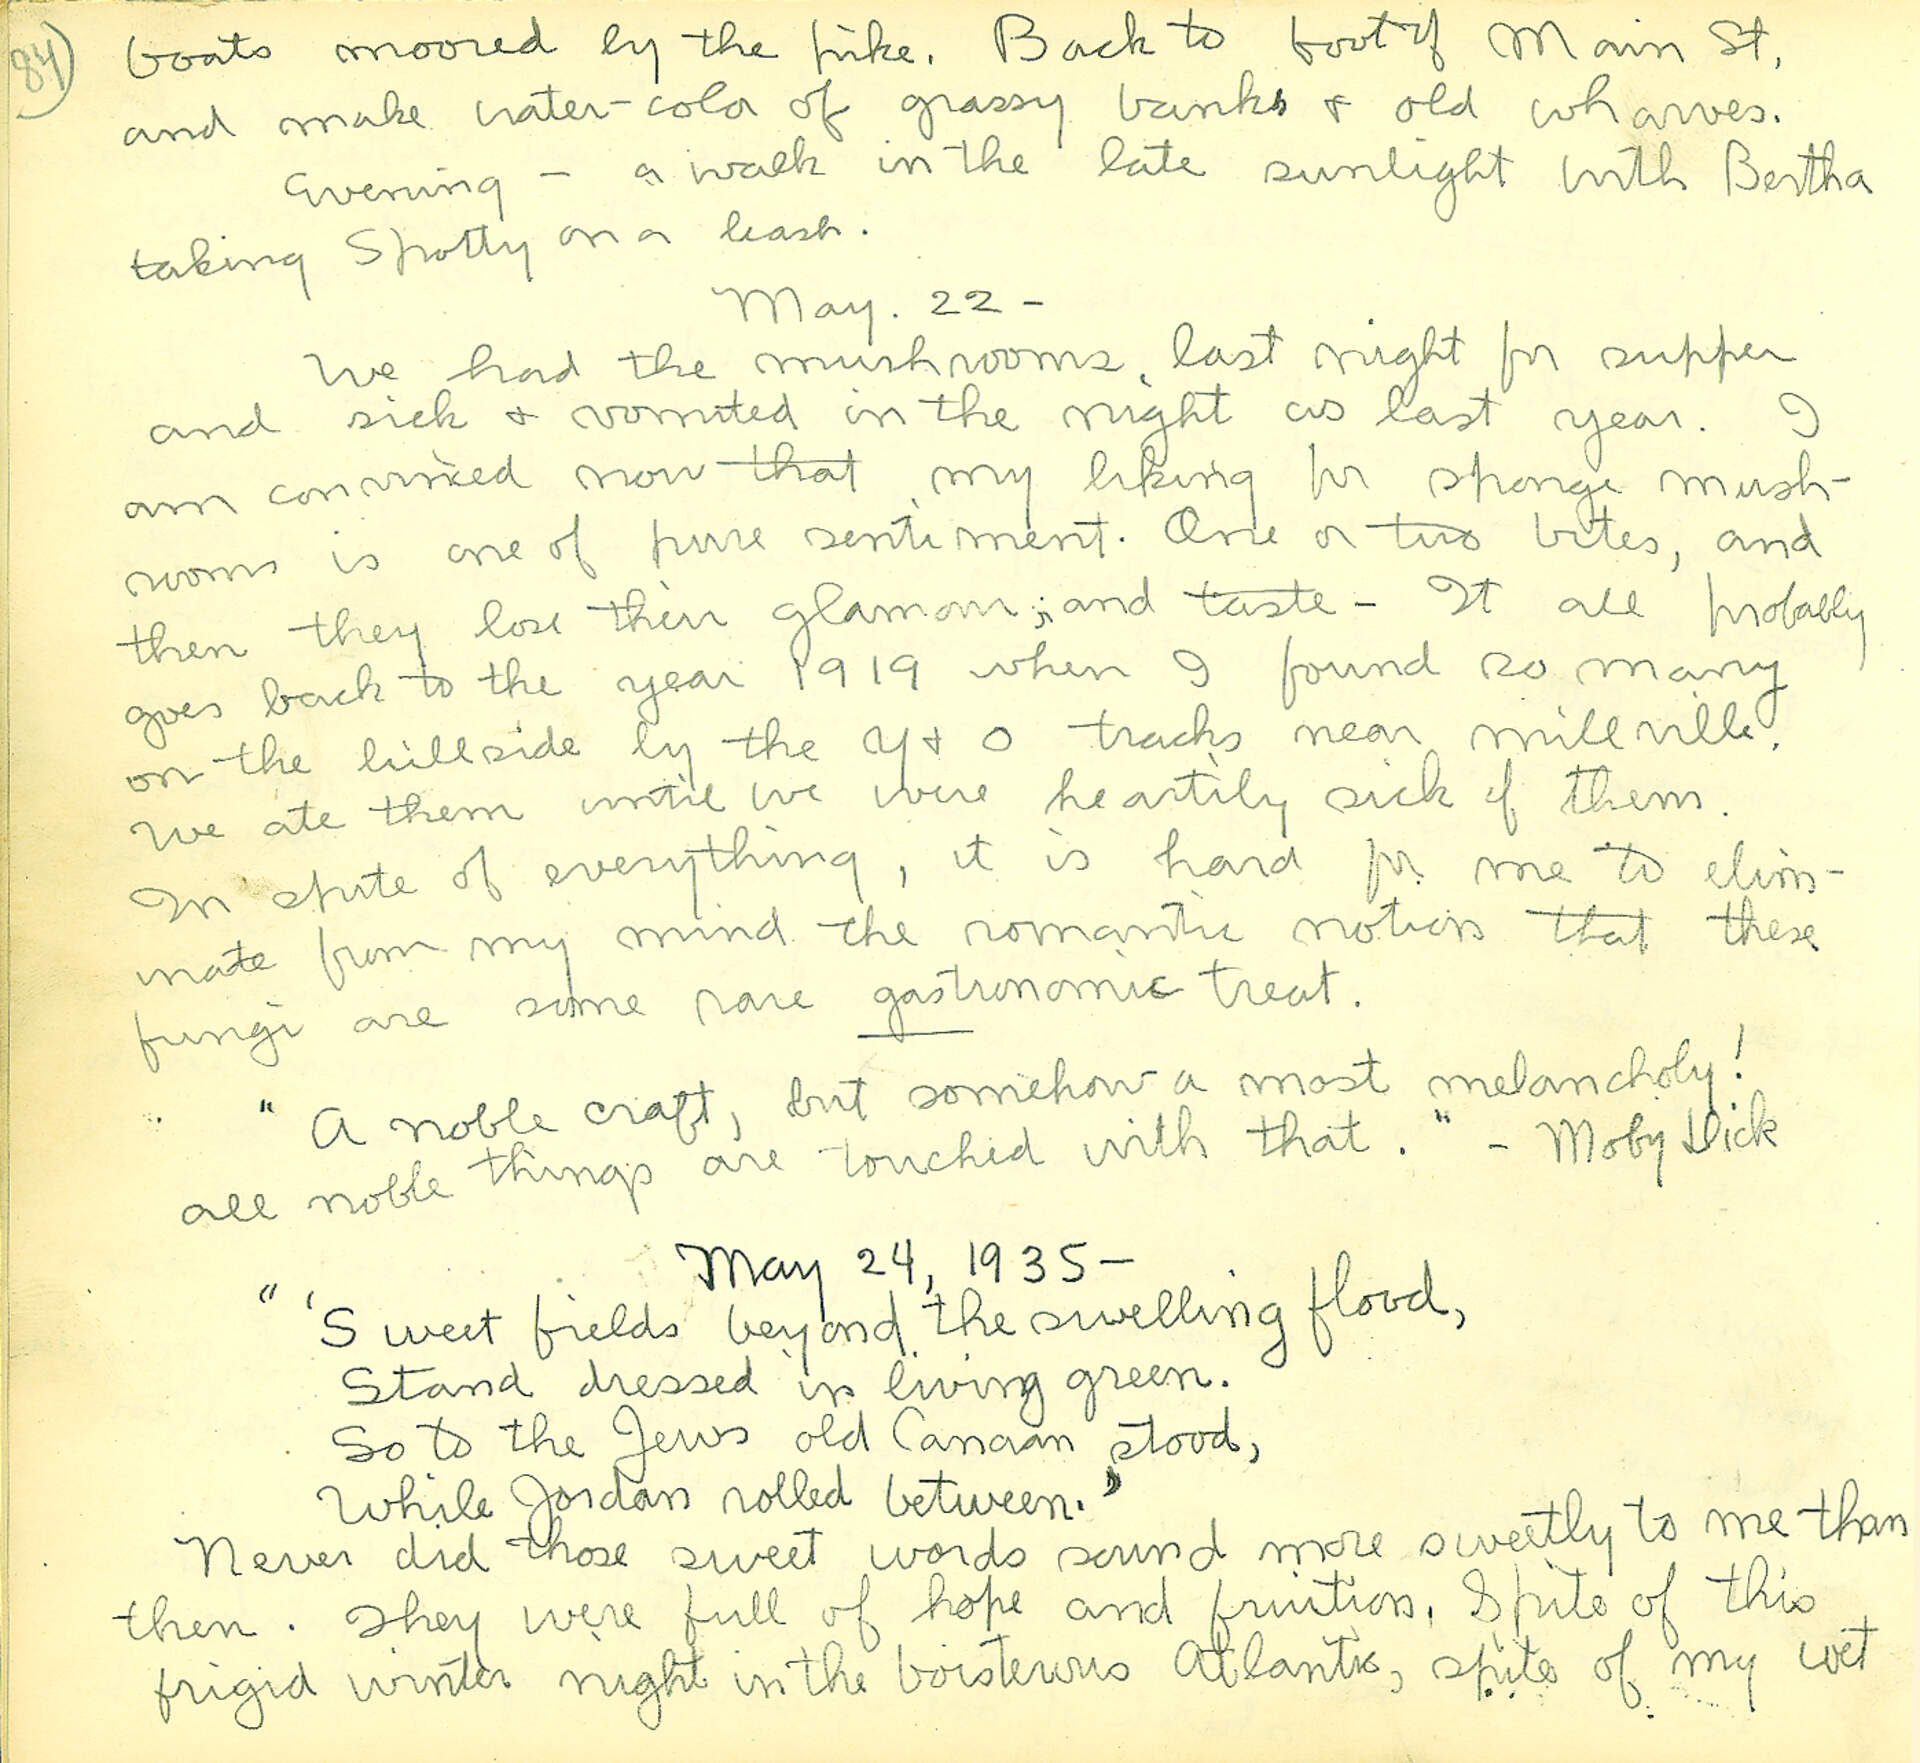 84)
boats moored by the pike. Back to foot of Main St,
and make water-color of grassy banks & old wharves.
Evening – a walk in the late sunlight with Bertha
taking Spotty on a leash.
May. 22 –
We had the mushrooms, last night for supper
and sick & vomited in the night as last year. I
am convinced now that my liking for sponge mush-
rooms is one of pure sentiment. One or two bites, and
then they lose their glamour; and taste – It all probably
goes back to the year 1919 when I found so many
on the hillside by the Y & O tracks near Millville.
We ate them until we were heartily sick of them.
In spite of everything, it is hard for me to elim-
inate from my mind the romantic notion that these
fungi are some rare gastronomic treat.
" A noble craft, but somehow a most melancholy!
all noble things are touched with that. " – Moby Dick
May 24, 1935 –
" 'Sweet fields beyond the swelling flood,
Stand dressed in living green.
So to the Jews old Canaan stood,
While Jordan rolled between."
Never did those sweet words sound more sweetly to me than
then. They were full of hope and fruition. Spite of this
frigid winter night in the boisterous Atlantic, spite of my wet